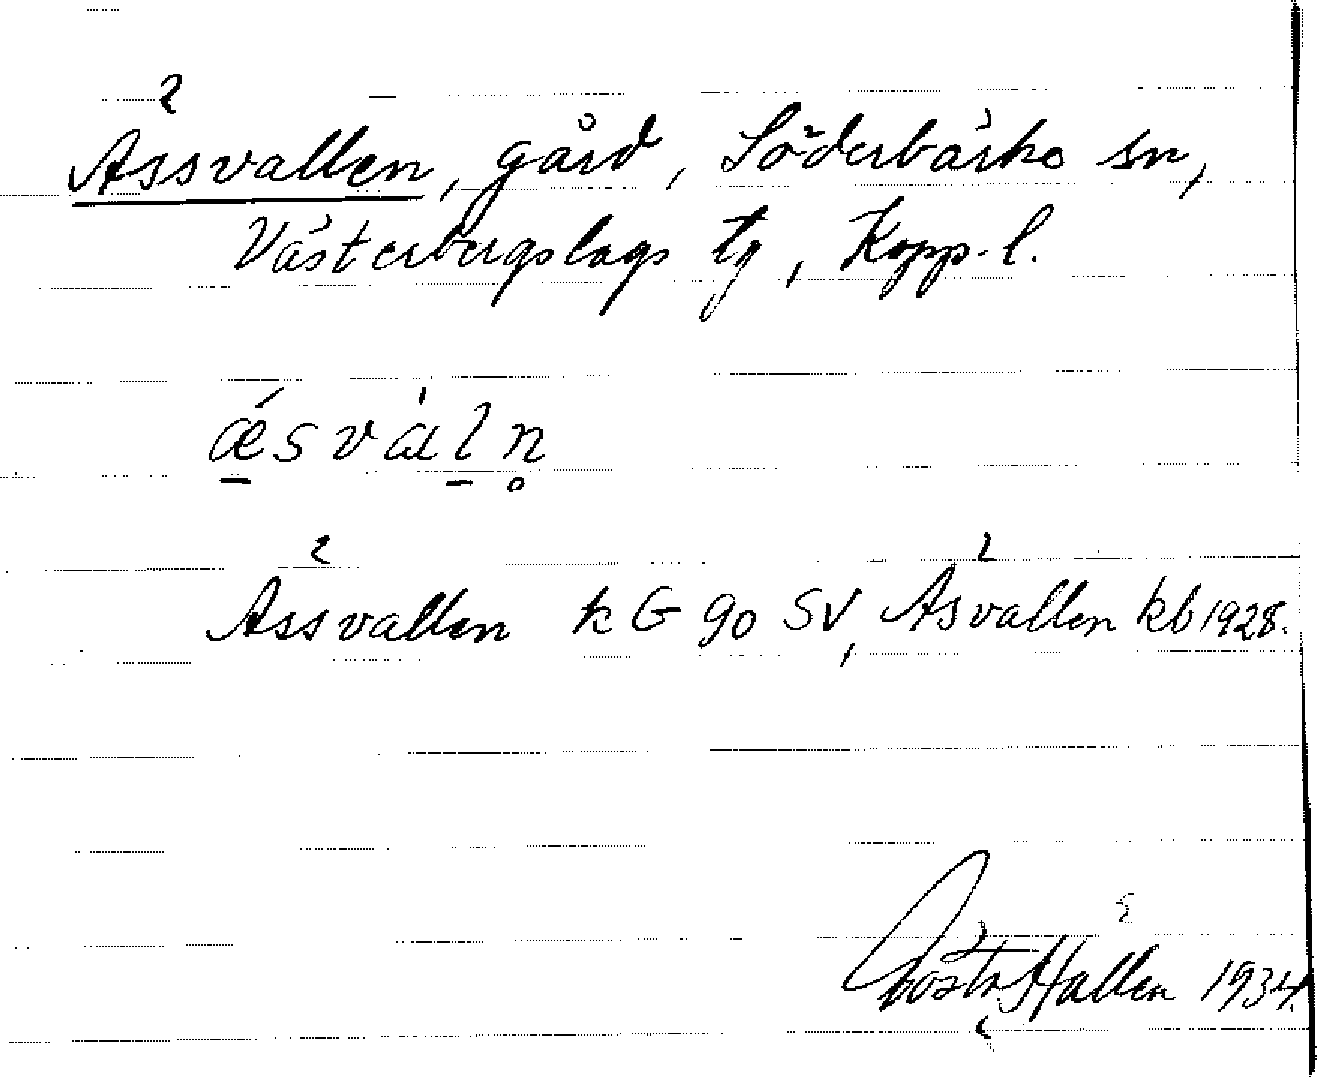 Ässvallen, gård, Söderbärke sn,
Västerbergslags tg, Kopp. l.
ǽsvàl̠n̥
Ässvallen k G 90 SV, Äsvallen kb 1928.
Gösta Hallén 1934.